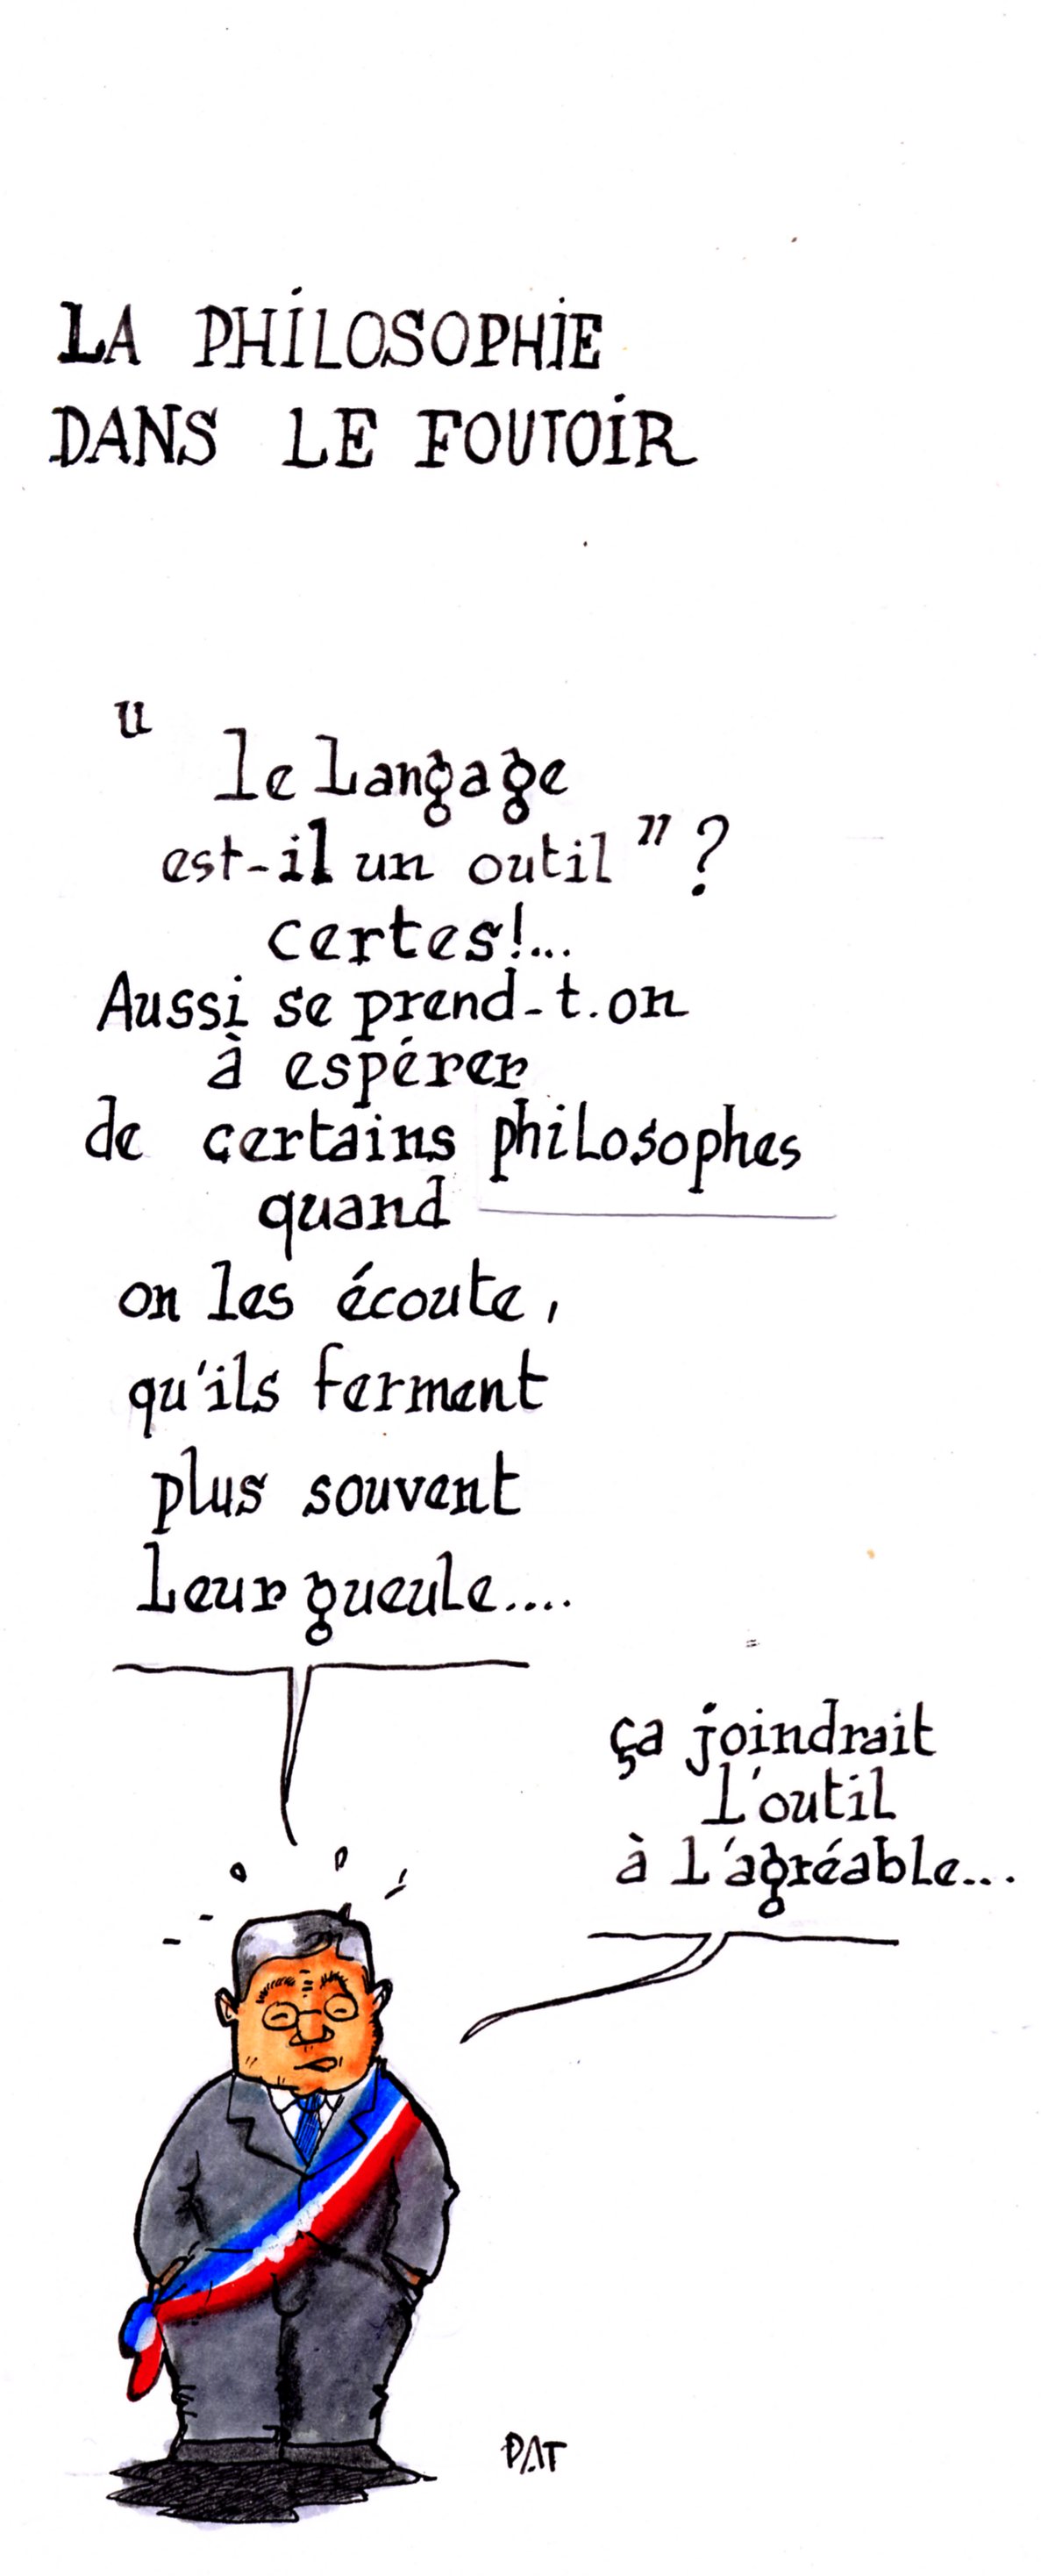 LA PHILOSOPHIE
DANS LE FOUTOIR
" le langage
est-il un outil " ?
certes!...
Aussi se prend-t.on
à espérer
de certains philosophes
quand
on les écoute,
qu'ils ferment
plus souvent
leur gueule....
ça joindrait
l'outil
à l'agréable...
PAT